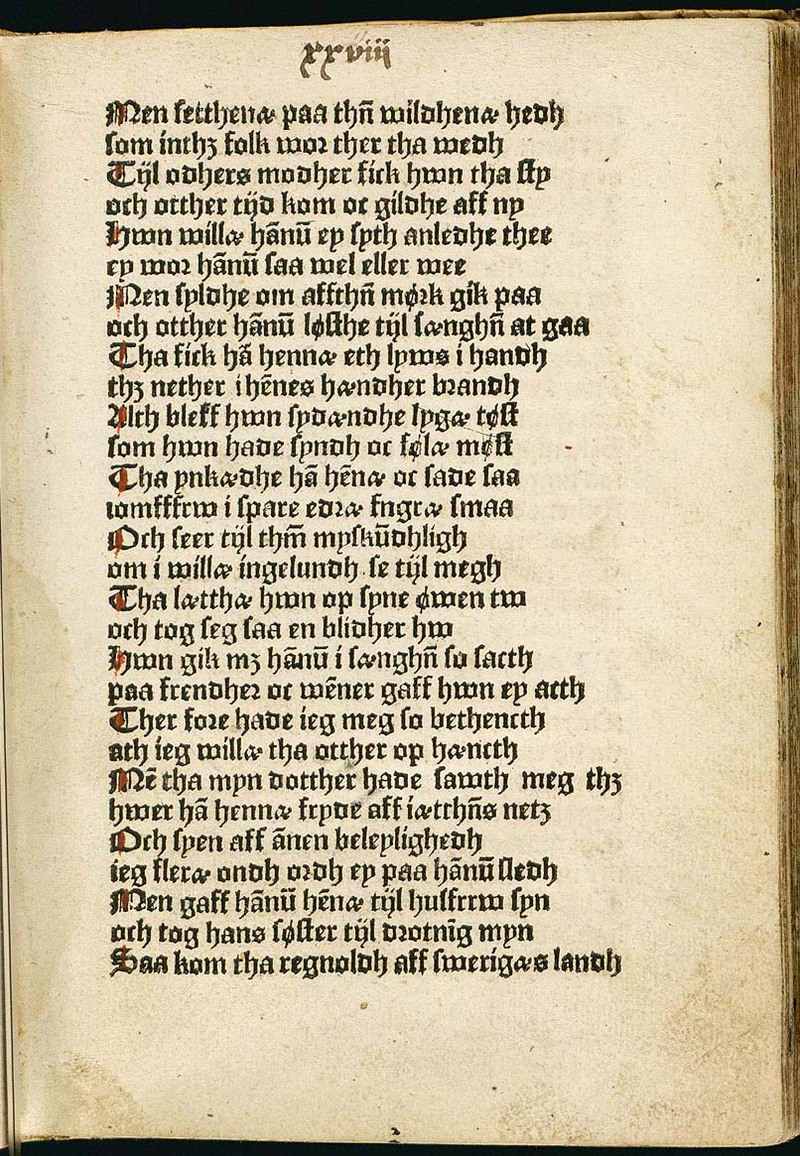 xxviii
Men setthenæ paa thn̄ wildhenæ hedh
som inthꝫ folk woꝛ ther tha wedh
Tijl odhers modher fick hwn tha sty
och otther tijd kom oc gildhe aff ny
Hwn willæ hānū ey syth anledhe thee
ey woꝛ hānū saa wel eller wee
Men syldhe om affthn̄ mørk gik paa
och otther hānū løsthe tijl sænghn̄ at gaa
Tha fick hā hennæ eth lyws i handh
thꝫ nether i hēnes hændher bꝛandh
Alth bleff hwn sydændhe lygæ tøst
som hwn hade syndh oc følæ møst
Tha ynkædhe hā hēnæ oc sade saa
iomfffrw i spare edꝛæ fngræ smaa
Och seer tijl thm̄ myskūdhligh
om i willæ ingelundh se tijl megh
Tha lætthæ hwn op syne øwen tw
och tog seg saa en blidher hw
Hwn gik mꝫ hānū i sænghn̄ so sacth
paa frendheꝛ oc wēner gaff hwn ey acth
Ther foꝛe hade ieg meg so bethencth
ath ieg willæ tha otther op hæncth
Mē tha myn dotther hade sawth meg thꝫ
hwer hā hennæ fryde aff iætthn̄s netꝫ
Och syen aff ānen beleylighedh
ieg fleræ ondh oꝛdh ey paa hānū sledh
Men gaff hānū hēnæ tijl husfrrw syn
och tog hans søster tijl dꝛotnīg myn
Saa kom tha regnoldh aff swerigæs landh